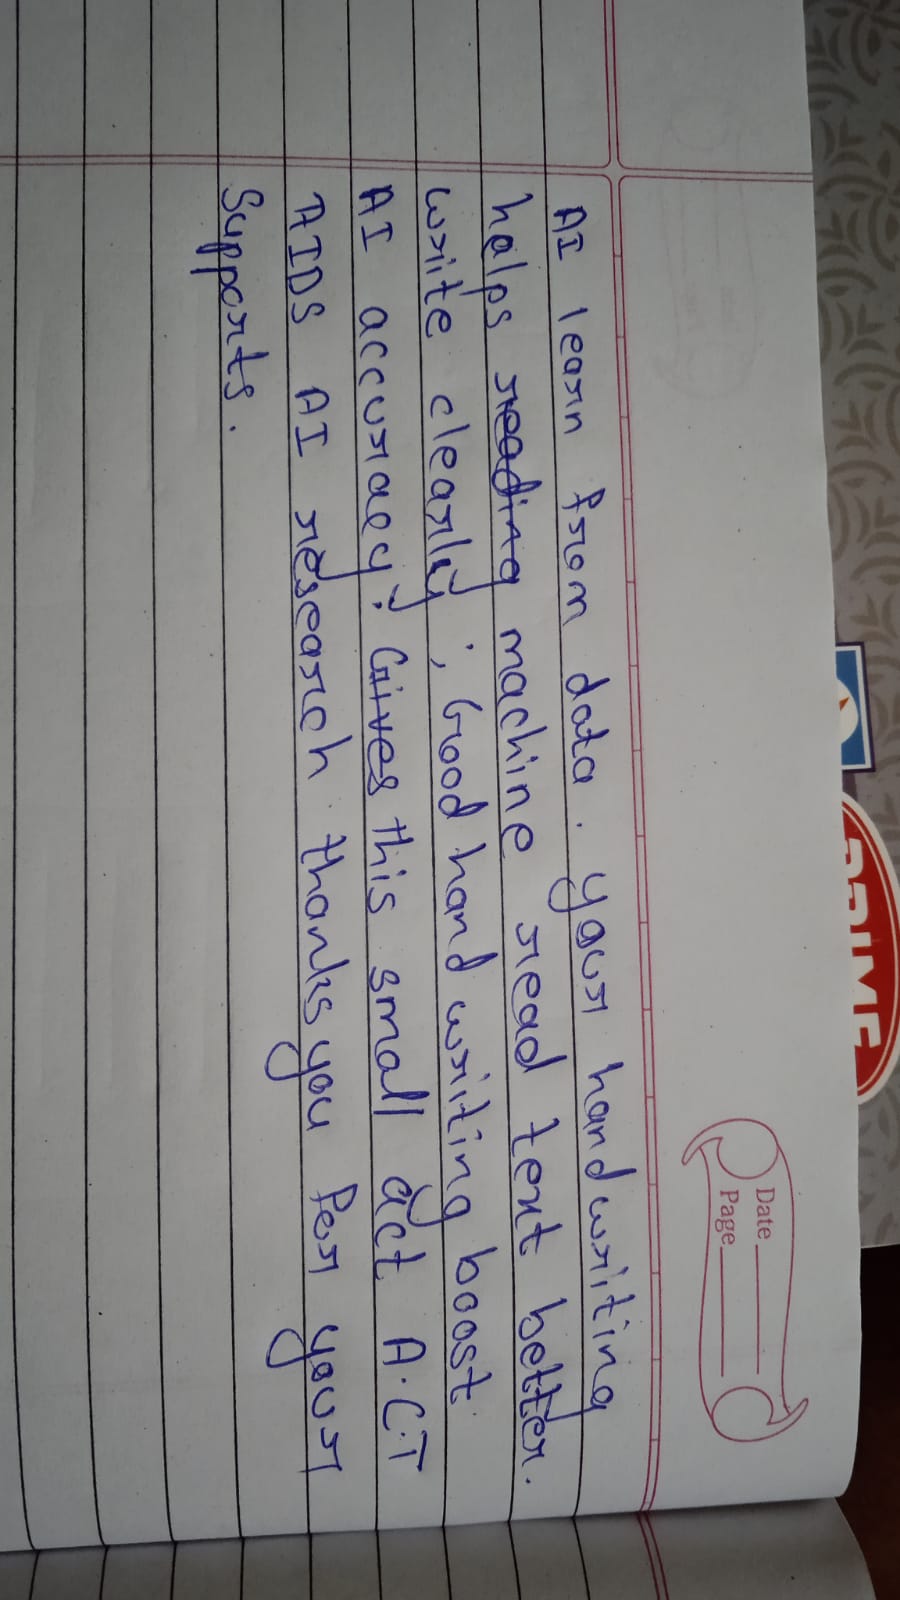 Date
Page
AI learn from data. your handwriting
helps reading machine read text better.
write clearly ; Good hand writing boost
AI accuracy. Gives this small act A.C.T
AIDS AI research. thanks you For your
Supports.